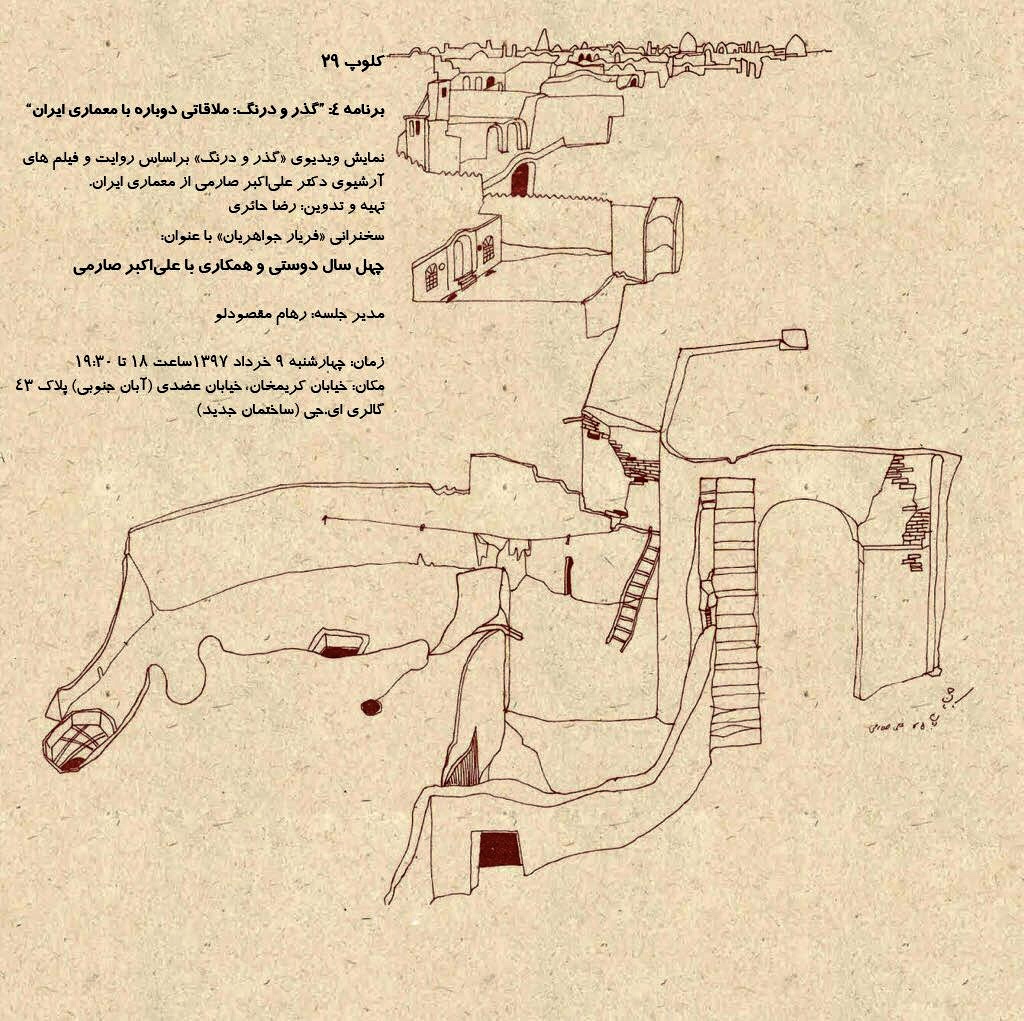 کلوپ ۲۹
برنامه ٤: "گذر و درنگ: ملاقاتی دوباره با معماری ایران"
نمایش ویدیوی «گذر و درنگ» براساس روایت و فیلم های
آرشیوی دکتر علی‌اکبر صارمی از معماری ایران.
تهیه و تدوین: رضا حائری
سخنرانی «فریار جواهریان» با عنوان:
چهل سال دوستی و همکاری با علی‌اکبر صارمی
مدیر جلسه: رهام مقصودلو
زمان: چهارشنبه ۹ خرداد ۱۳۹۷ساعت ۱۸ تا ۱۹:۳۰
مکان: خیابان کریمخان، خیابان عضدی (آبان جنوبی) پلاک ٤٣
گالری ای.جی (ساختمان جدید)